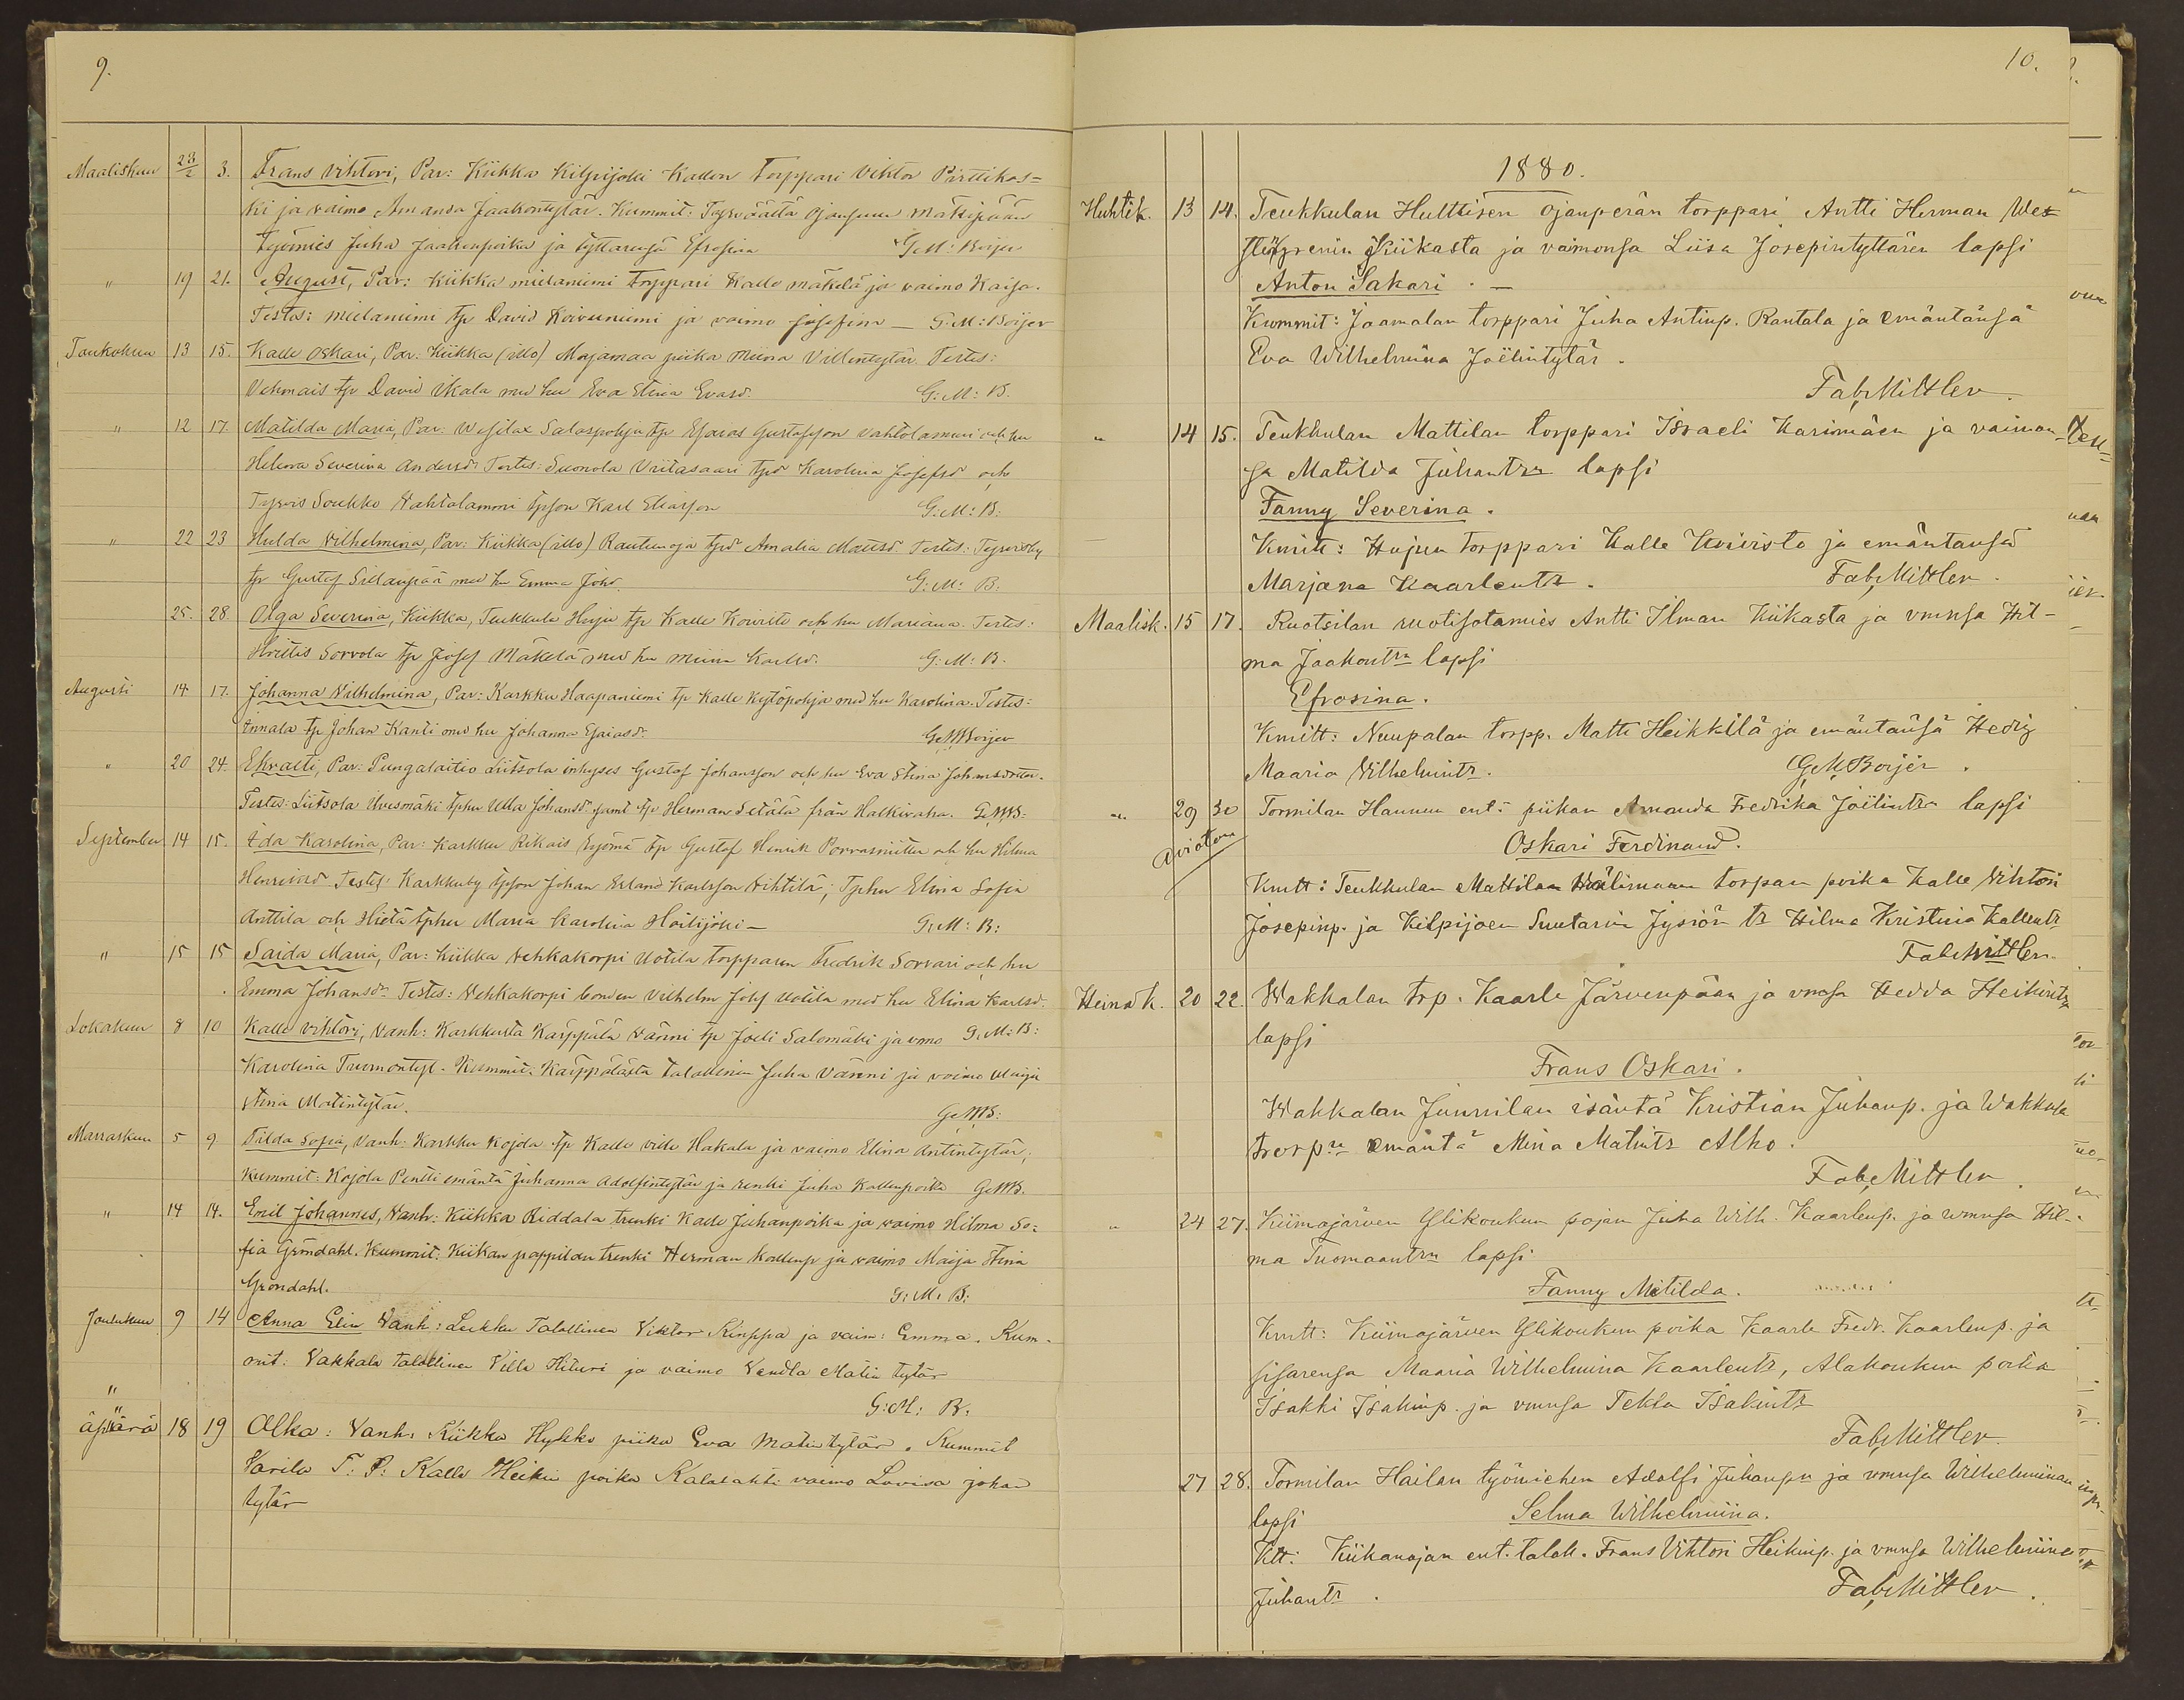 9.
Maaliskuu 23/2 3. Frans Vihtori, Par: Kiikka Kilpijoki Kallon torppari Viktor Pirttikos=
ki ja vaimo Amanda Jaakontytär. Kummit: Tyrväältä Ojansuun Mäkipään
työmies Juha Jaakonpoika ja tyttärensä Efrosina G: M: Boijer
" 19 21. August, Par: Kiikka mielaniemi torppari Kalle Mäkelä ja vaimo Kaisa.
Testes: mielaniemi tp David Koivuniemi ja vaimo Josefina — G: M: Boijer
Toukokuu 13 15. Kalle Oskari, Par: Kiikka (illo) Marjamaa piika Miina Villentytär. Testes:
Vehmais tp David Ikala med hu Eva Stina Evasd. G: M: B.
" 12 17. Matilda Maria, Par: Wesilax Salaspohja tp Esaias Gustafsson Vahtolammi och hu
Helena Severina Andersdr Testes: Suonola Viitasaari tpd Karolina Josefsd och
Tyrvis Soukko Vahtolammi tpson Karl Eliasson G: M: B:
" 22 23 Hulda Vilhelmina, Par: Kiikka (illo) Rautunoja tpd Amalia Mattsd. Testes: Tyrvisby
tp Gustaf Sillanpää med hu Emma Johd. G: M: B:
25. 28. Olga Severina, Kiikka, Teukkula Huju tp Kalle Koivisto och hu Mariana. Testes:
Hvittis Sorvola tp Josef Mäkelä med hu Miina Karlsd. G: M: B.
Augusti 14 17. Johanna Vilhelmina, Par: Karkku Haapaniemi tp Kalle Kytöpohja med hu Karolina. Testes:
Annala tp Johan Kanti med hu Johanna Esaiasd. G M Boijer
" 20 24. Ekvalti, Par: Pungalaitio Liitsola inhyses Gustaf Johansson och hu Eva Stina Johansdotter.
Testes: Liitsola Uvesmäki tphu Ulla Johansdr samt tp Herman Setälä från Halkivaha. G M B:
September 14 15. Ida Karolina, Par: Karkku Rikais Evjömä tp Gustaf Henrik Porrasniittu och hu Hilma
Henriksd Testes: Karkkuby tpson Johan Erland Karlsson Vihtilä; Tphu Elina Sofia
Anttila och Hietä tphu Maria Karolina Hoilijoki — G: M: B:
" 15 15 Saida Maria, Par: Kiikka Vehkakorpi Uotila torpparen Fredrik Sorvari och hu
Emma Johansdr Testes: Vehkakorpi bonden Vilhelm Josef Uotila med hu Elina Karlsd.
Lokakuu 8 10 Kalle Vihtori, Vanh: Karkkusta Karppälä Vänni tp Joeli Salomäki ja vmo G: M: B:
Karolina Tuomontyt. Kummit: Käippälästä talollinen Juha Vänni ja vaimo Maija
Stina Matintytär. G: M B:
Marraskuu 5 9 Tilda Sofia, Vanh: Karkku Kojola tp Kalle Ville Hakala ja vaimo Elina Antintytär;
Kummit: Kojola Pentti emäntä Juhanna Adolfintytär ja renki Juha Kallenpoika G: M B.
" 14 14. Emil Johannes, Vanh: Kiikka Riddala trenki Kalle Juhanpoika ja vaimo Hilma So-
fia Gröndahl. Kummit: Kiikan pappilan trenki Herman Kallenp ja vaimo Maija Stina
Gröndahl. G: M: B:
Joulukuu 9 14 Anna Elin Vanh: Leikku Talollinen Viktor Kinppa ja vaim: Emma. Kum-
mit: Vakkala talollinen Ville Hituri ja vaimo Vendla Matin tytär
G: M: B:
"
äpärä 18 19 Alka: Vanh: Kiikka Hykko piika Eva Matintytär. Kummit
Varila T: P: Kalle Heikin poika Kalalahti vaimo Lovisa johan
tytär
10.
1880.
Huhtik. 13 14. Teukkulan Hulttisen ojanperän torppari Antti Herman Wes
Kiikasta ja vaimonsa Liisa Josepintyttären lapsi
Anton Sakari. —
Kummit: Jaamalan torppari Juha Antinp. Rantala ja emäntänsä
Eva Wilhelmina Joëlintytär.
Fab. Mittler.
" 14 15. Teukkulan Mattilan torppari Israeli Karimäen ja vaimon-
sa Matilda Juhantrn lapsi
Fanny Severina.
Kmitt: Hujun torppari Kalle Koivisto ja emäntänsä
Marjana Kaarlentr. Fab. Mittler.
Maalisk. 15 17. Ruotsilan ruotisotamies Antti Ilman Kiikasta ja vmnsa Hil-
ma Jaakontrn lapsi
Efrosina.
Kmitt: Nuupalan torpp. Matti Heikkilä ja emäntänsä Hedvig
Maaria Wilhelmintr. G. M. Boijer.
" 29 30 Tormilan Hannun ent. piikan Amanda Fredrika Joëlintrn lapsi
Avioton Oskari Ferdinand.
Kmtt: Teukkulan Mattilan Wälimaan torpan poika Kalle Vihtori
Josepinp. ja Kilpijoen Suutarin Jysiön tr Hilma Kristina Kallentr
Fab. Mittler.
Heinäk. 20 22. Wakkalan trp. Kaarle Järvenpään ja vmnsa Hedda Heikintr
lapsi
Frans Oskari.
Wakkalan Junnilan isäntä Kristian Juhanp. ja Wakkala
trorpn emäntä Mina Matintr Alho.
Fab. Mittler.
" 24 27. Kiimajärven Ylikoukun pojan Juha Wilh. Kaarlenp. ja vmnsa Hil-
ma Tuomaantrn lapsi
Fanny Matilda.
Kmtt: Kiimajärven Ylikoukun poika Kaarle Fredr. Kaarlenp. ja
sisarensa Maaria Wilhelmina Kaarlentr, Alakoukun poika
Isakki Isakinp. ja vmnsa Tekla Isakintr
Fab. Mittler.
27 28. Tormilan Hailan työmiehen Adolfi Juhanpn ja vmnsa Wilhelmiinan
lapsi Selma Wilhelmiina.
Ktt: Kiikanojan ent. talol. Frans Vihtori Heikinp. ja vmnsa Wilhelmiina
Juhantr. Fab. Mittler.